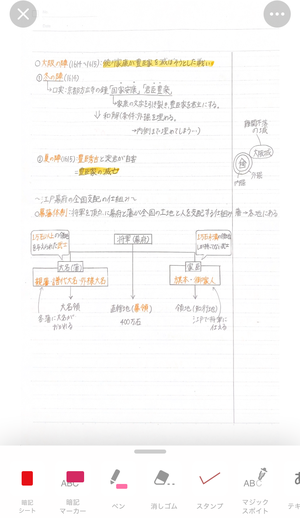 ○大阪の陣(1614〜1615):徳川家康が豊臣家を滅ぼそうとした戦い
①冬の陣(1614)
口実:京都方広寺の鐘「国家安康」「君臣豊楽」
家康の文字を引き裂き、豊臣家を君主にする。
↓ 和解(条件:外堀を埋める。
→内堀まで埋めてしまう…)
難攻不落の城
大阪城
内堀
外堀
②夏の陣(1615) 豊臣秀頼と淀君が自害
=豊臣家の滅亡
〜江戸幕府の全国支配の仕組み〜
○幕藩体制:将軍を頂点に幕府と藩が全国の土地と人を支配する仕組み
藩→各地にある
1万石以上の領地を与えられた武士
将軍(幕府)
1万石未満の
大名(藩)
家臣
親藩・譜代大名・外様大名
旗本・御家人
大名領
直轄地(幕領)
400万石
領地(知行地)
各藩に大名が
江戸で将軍に仕える
暗記シート
暗記マーカー
ペン
消しゴム
スタンプ
マジックスポイト
テキ